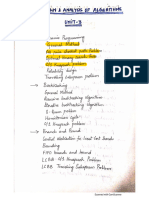 DESIGN & ANALYSIS OF ALGORITHMS
UNIT-3
Dynamic Programming
General Method
All pairs shortest path Problem
Optimal Binary Search Tree
0/1 Knapsack problem
Reliability design
Travelling Salesperson problem
Backtracking
General Method
Recursive backtracking algorithm
Iterative backtracking algorithm
8-Queen problem
Hamiltonian cycle
0/1 Knapsack problem
Branch and Bound
Branching
FIFO branch and bound
LCBB 0/1 Knapsack Problem
LCBB Travelling Salesperson Problem